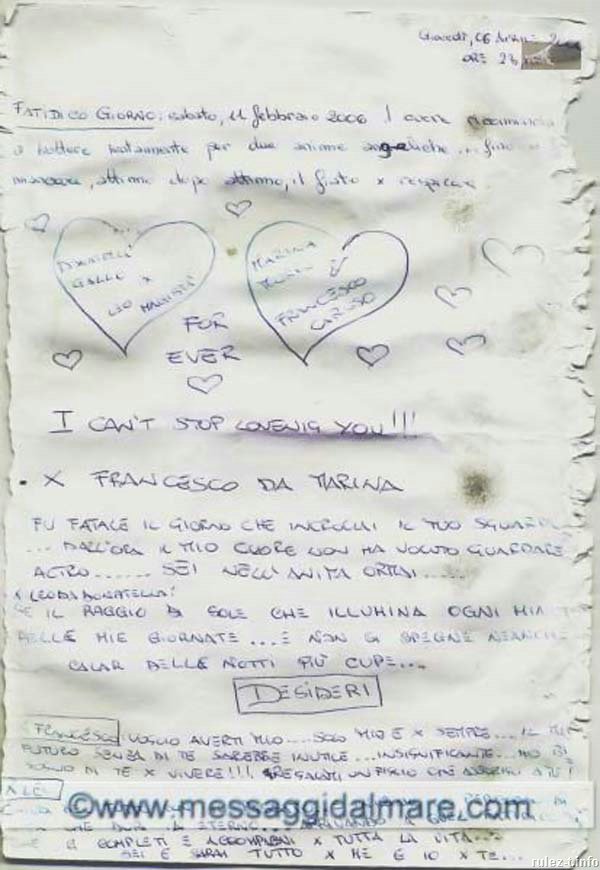 Giovedì, 06 APRILE
ORE 23
FATIDICO GIORNO: sabato, 11 febbraio 2006 il cuore ricomincia
a battere per due anime angeliche ... fino a
mancare, attimo dopo attimo, il fiato x respirare.
GALLI X
LEO
MARINA
FRANCESCO
CARUSO
FOR
EVER
I CAN'T STOP LOVENIG YOU!!!
. X FRANCESCO DA MARINA
FU FATALE IL GIORNO CHE INCROCIAI IL TUO SGUARDO
... DALL'ORA IL MIO CUORE NON HA VOLUTO GUARDARE
ALTRO....... SEI NELL'ANIMA ORMAI......
X LEO DA DONATELLA:
SE IL RAGGIO DI SOLE CHE ILLUMINA OGNI
DELLE MIE GIORNATE... E NON SI SPEGNE NEANCHE
CALAR DELLE NOTTI PIÙ CUPE...
DESIDERI
FRANCESCO VOGLIO AVERTI MIO... SOLO MIO E X SEMPRE... IL MIO
FUTURO SENZA DI TE SAREBBE INUTILE... INSIGNIFICANTE... HO BI
SOGNO DI TE X VIVERE!!! REGALATI UN FIGLIO CHE A TE!
X LEO
©www.messaggidalmare.com
CHE ETERNO
E COMPLETI E ACCOMPAGNI X TUTTA LA VITA...
SEI E SARAI TUTTO X ME E IO X TE...
rulez-t.info